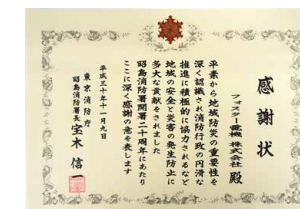 感謝状
フォスター電機 株式会社 殿
平素から地域防災の重要性を
深く認識され消防行政の円滑な
推進に積極的に協力されるなど
地域の安全と災害の発生防止に
多大な貢献をされました
昭島消防署開署二十周年にあたり
ここに深く感謝の意を表します
平成三十年十一月九日
東京消防庁
昭島消防署長 宝木 信一